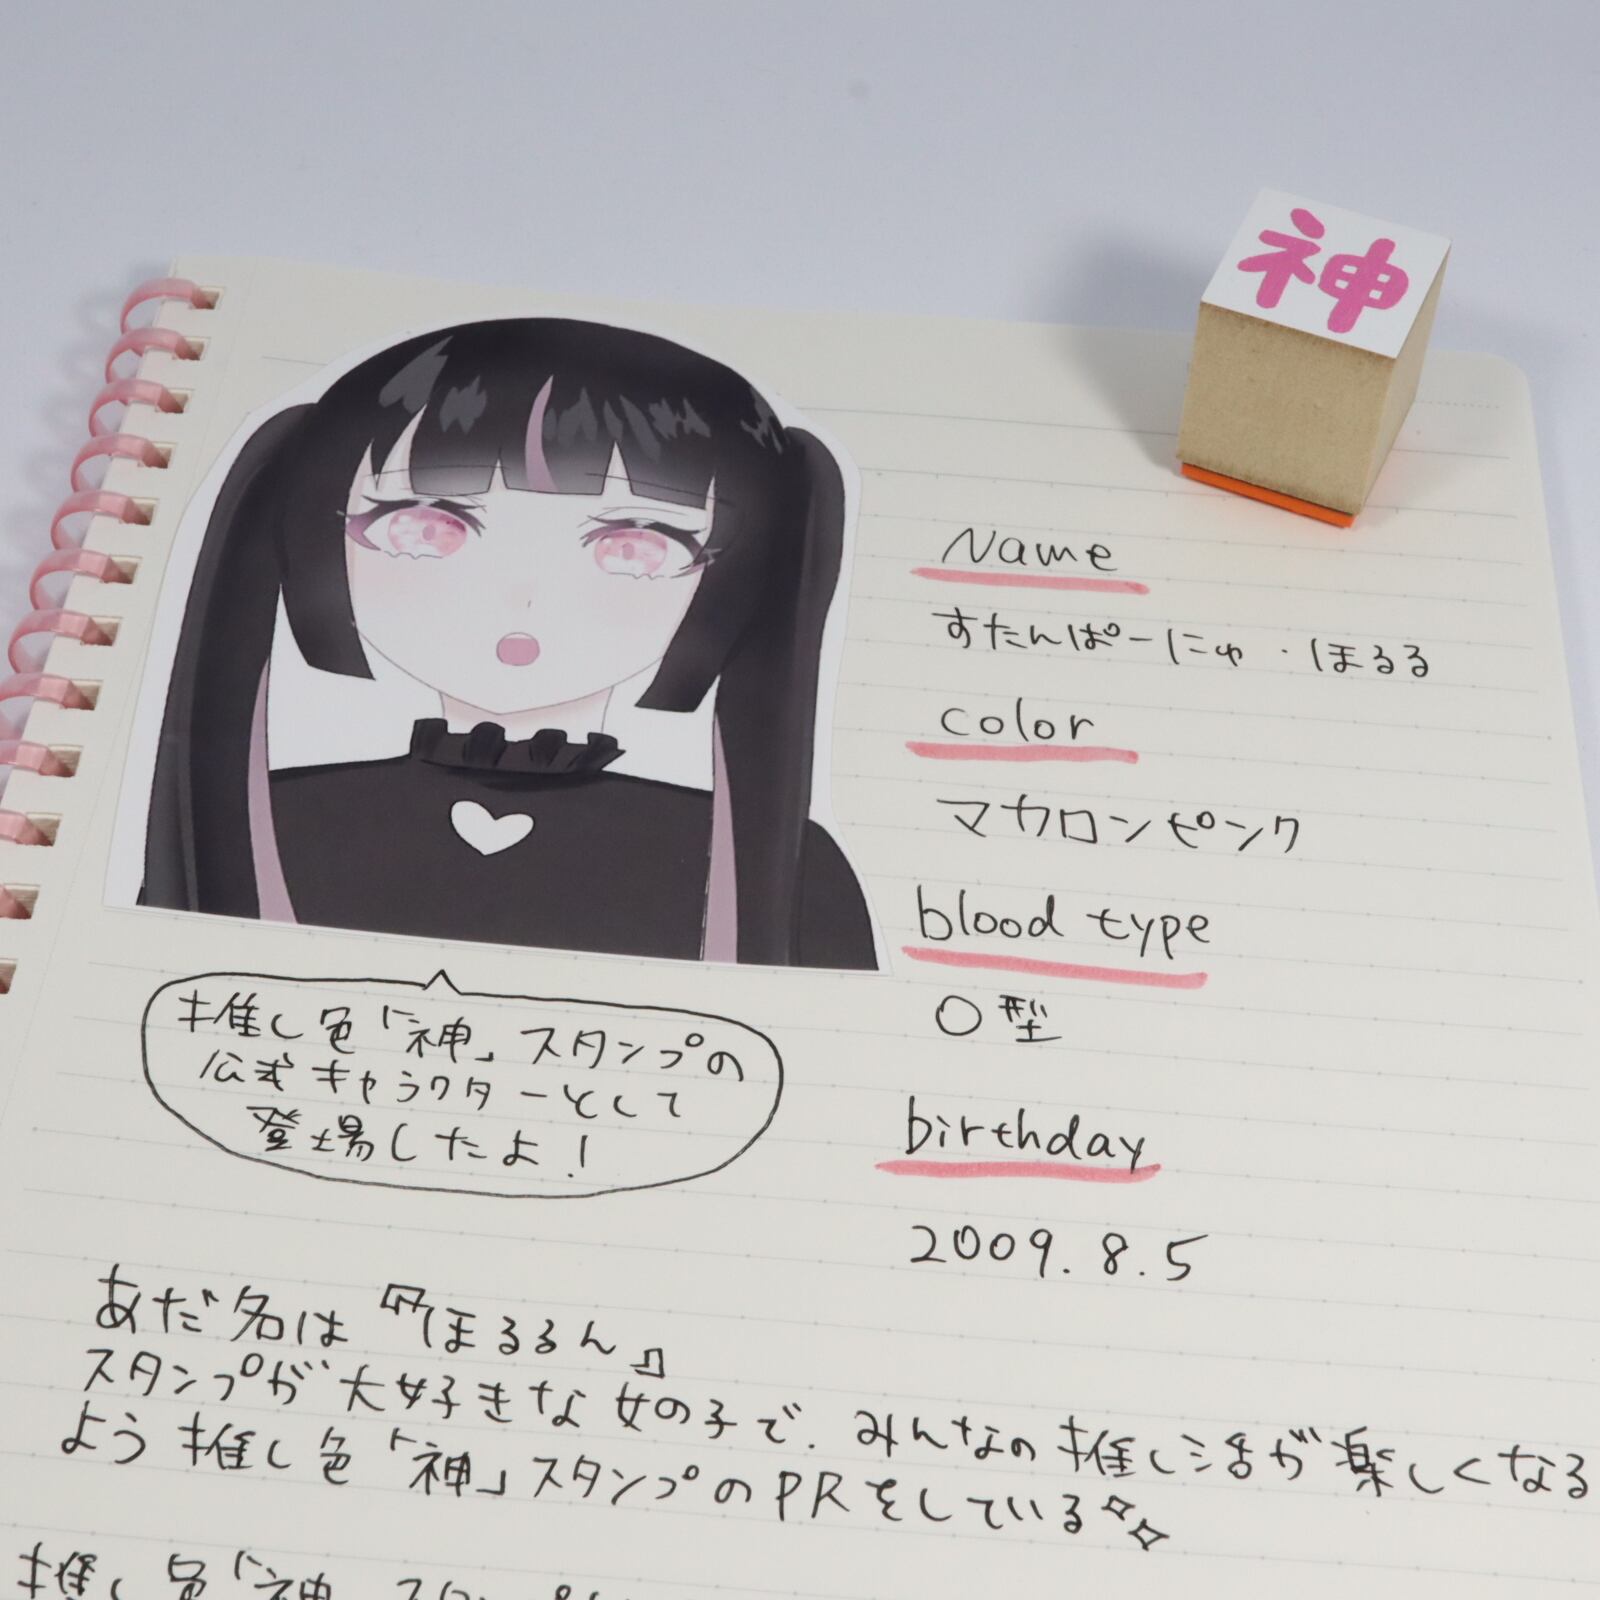 神
Name
すたんぱーにゅ・ほるる
color
マカロンピンク
blood type
O型
birthday
2009.8.5
推し色「神」スタンプの
公式キャラクターとして
登場したよ！
あだ名は『ほるるん』
スタンプが大好きな女の子で、みんなの推し活が楽しくなる
よう推し色「神」スタンプのPRをしている✧✧
推し色「神